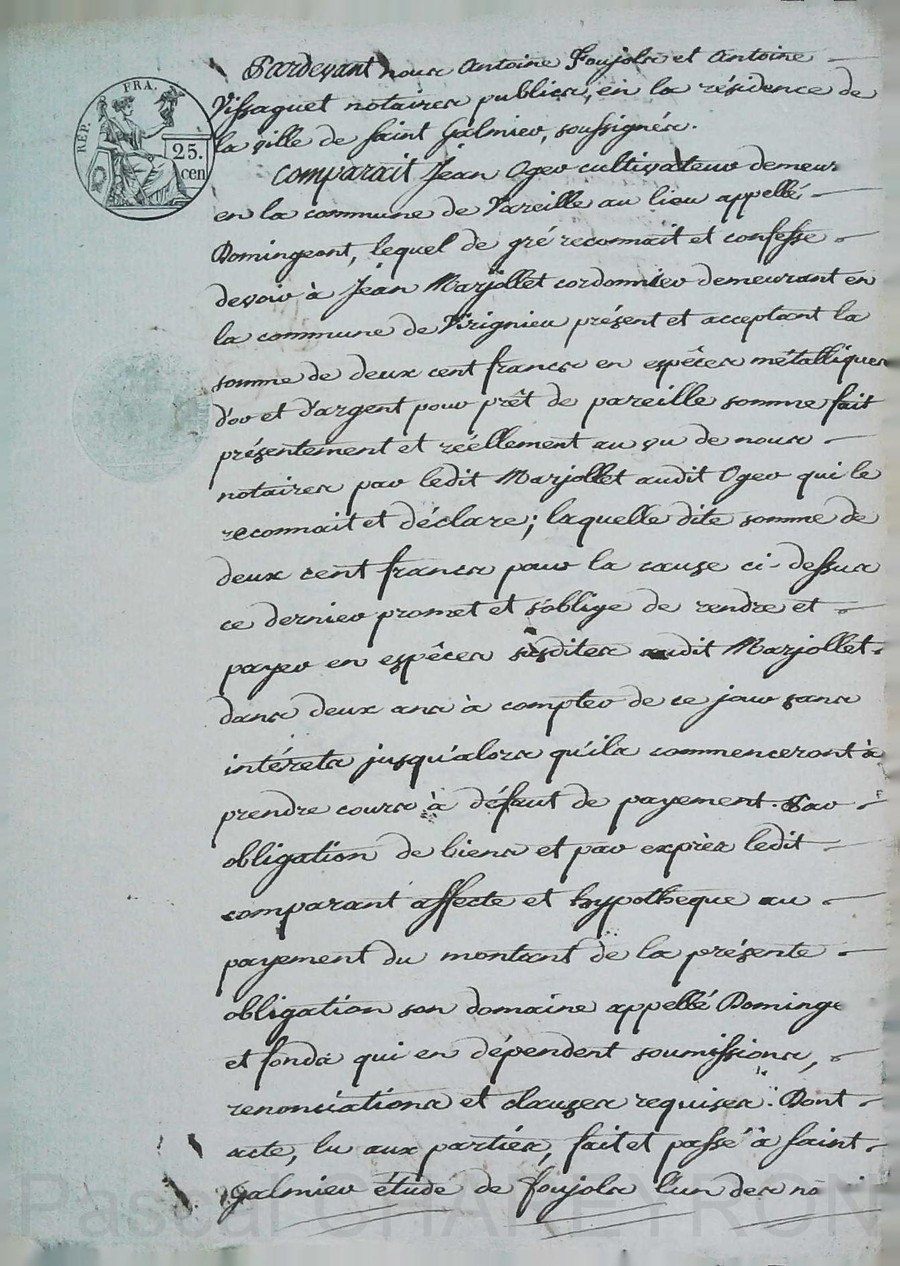 REP. FRA.
25. cen
Pardevant nous Antoine Foujols et Antoine
Vissaguet notaires publics, en la résidence de
la ville de Saint Galmier, soussignés.
Comparait Jean Oger cultivateur demeur
en la commune de Vareille au lieu appellé
Domingeont, lequel de gré reconnait et confesse
devoir à Jean Marjollet cordonnier demeurant en
la commune de Virignieu présent et acceptant la
somme de deux cent francs en espêces métalliques
d'or et d'argent pour prêt de pareille somme fait
présentement et réellement au vu de nous
notaires par ledit Marjollet audit Oger qui le
reconnait et déclare; laquelle dite somme de
deux cent francs pour la cause ci-dessus
ce dernier promet et s'oblige de rendre et
payer en espêces susdites audit Marjollet
dans deux ans à compter de ce jour sans
intérets jusqu'alors qu'ils commenceront à
prendre cours à défaut de payement. Par
obligation de biens et par exprès ledit
comparant affecte et hypotheque au
payement du montant de la présente
obligation son domaine appellé Dominge
et fonds qui en dépendent soumissions,
renonciations et clauses requises. Dont
acte, lu aux parties, fait et passé à Saint
Galmier étude de foujols l'un des no
Pascal CHAREYRON